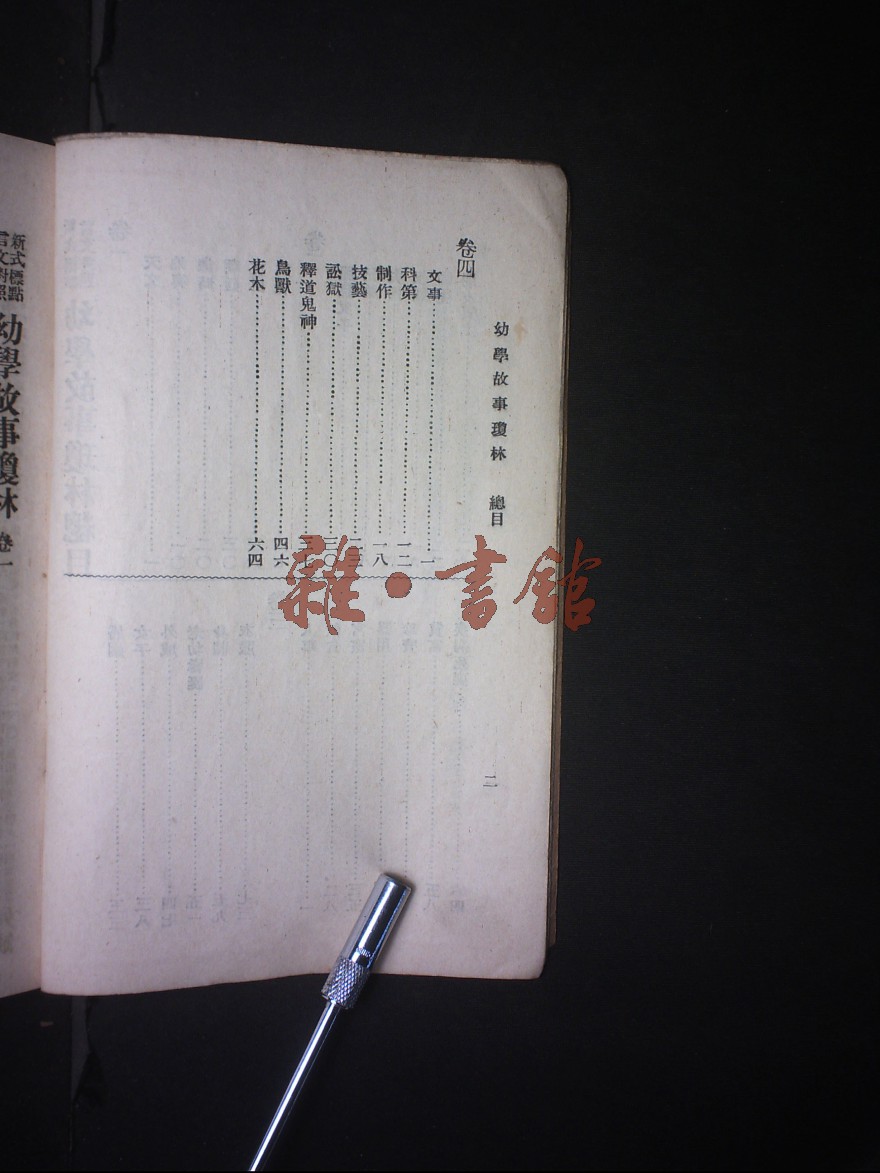 幼學故事瓊林 總目 二
卷四
文事 一
科第 一二
制作 一八
技藝 二三
訟獄 三〇
釋道鬼神
鳥獸 四六
花木 六四
雜·書館
新式標點
言文對照
幼學故事瓊林 卷一